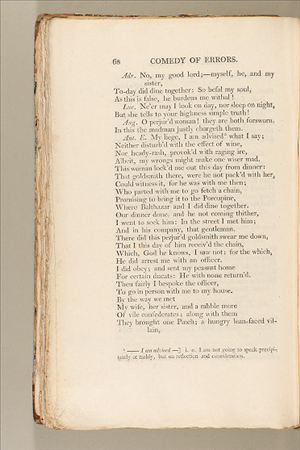 68 COMEDY OF ERRORS.
Adr. No, my good lord;—myself, he, and my
sister,
To-day did dine together: So befal my soul,
As this is false, he burdens me withal!
Luc. Ne'er may I look on day, nor sleep on night,
But she tells to your highness simple truth!
Ang. O perjur'd woman! they are both forsworn.
In this the madman justly chargeth them.
Ant. E. My liege, I am advised¹ what I say;
Neither disturb'd with the effect of wine,
Nor heady-rash, provok'd with raging ire,
Albeit, my wrongs might make one wiser mad.
This woman lock'd me out this day from dinner:
That goldsmith there, were he not pack'd with her,
Could witness it, for he was with me then;
Who parted with me to go fetch a chain,
Promising to bring it to the Porcupine,
Where Balthazar and I did dine together.
Our dinner done, and he not coming thither,
I went to seek him: In the street I met him;
And in his company, that gentleman.
There did this perjur'd goldsmith swear me down,
That I this day of him receiv'd the chain,
Which, God he knows, I saw not: for the which,
He did arrest me with an officer.
I did obey; and sent my peasant home
For certain ducats: He with none return'd.
Then fairly I bespoke the officer,
To go in person with me to my house.
By the way we met
My wife, her sister, and a rabble more
Of vile confederates; along with them
They brought one Pinch; a hungry lean-faced vil-
lain,
¹ —— I am advised —] i. e. I am not going to speak precipi-
tately or rashly, but on reflection and consideration.